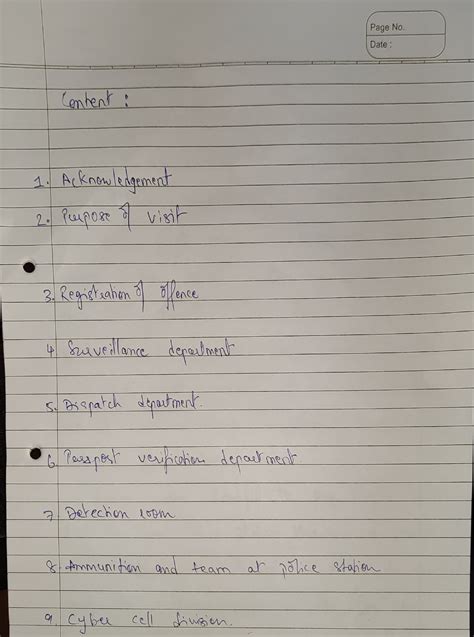 Page No.
Date :
Content :
1. Acknowledgement
2. Purpose of visit
3. Registration of offence
4 Surveillance department
5. Dispatch department.
6. Passport verification department
7. Detection room
8. Ammunition and team at police station
9. Cyber cell division.